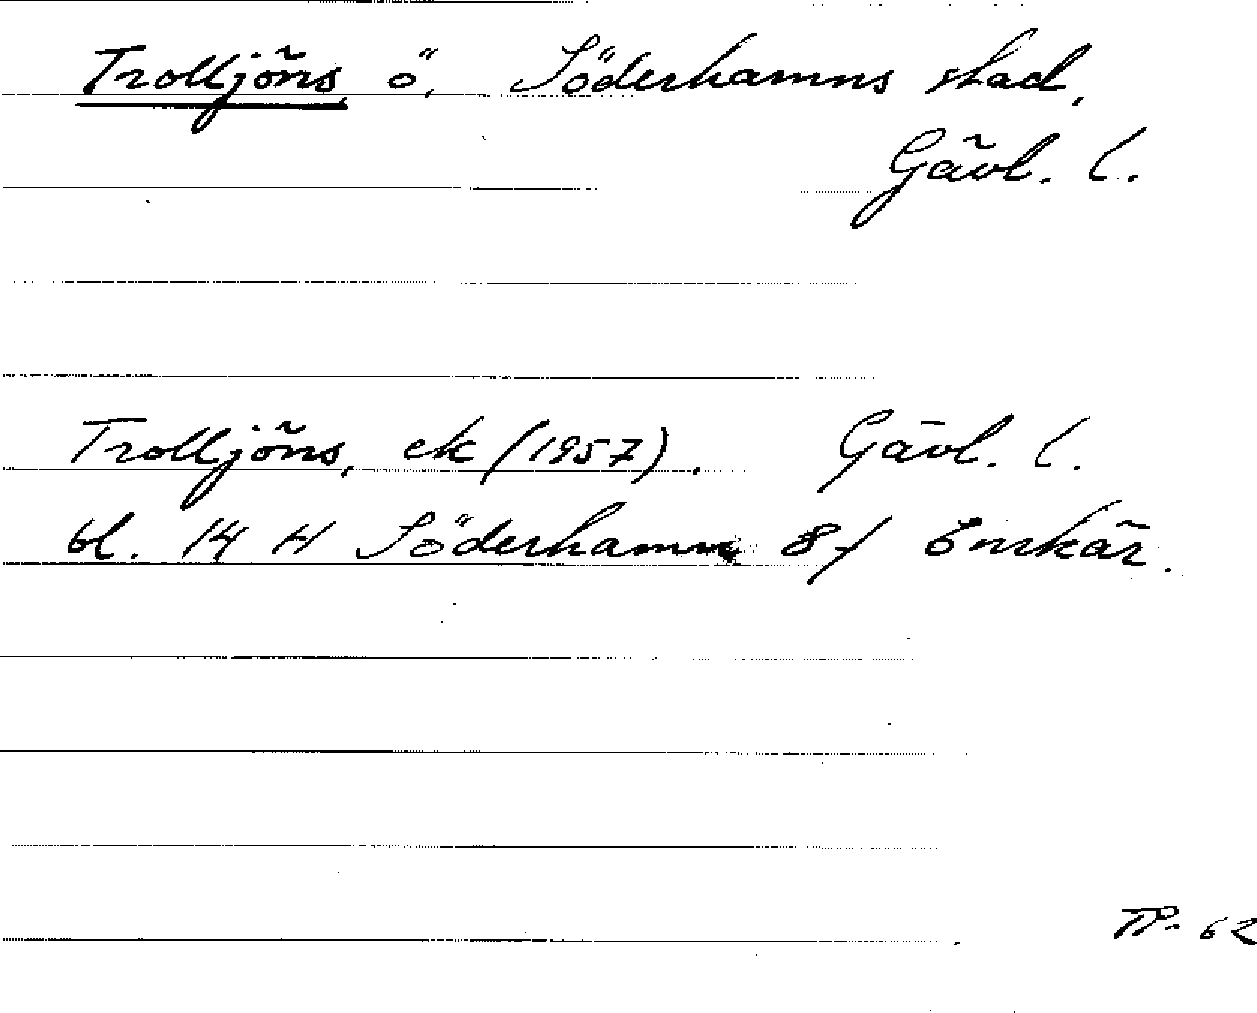 Trolljöns, ö, Söderhamns stad,
Gävl. l.
Trolljöns, ek (1957). Gävl. l.
bl. 14 H Söderhamn 8f Enskär.
TP. 62